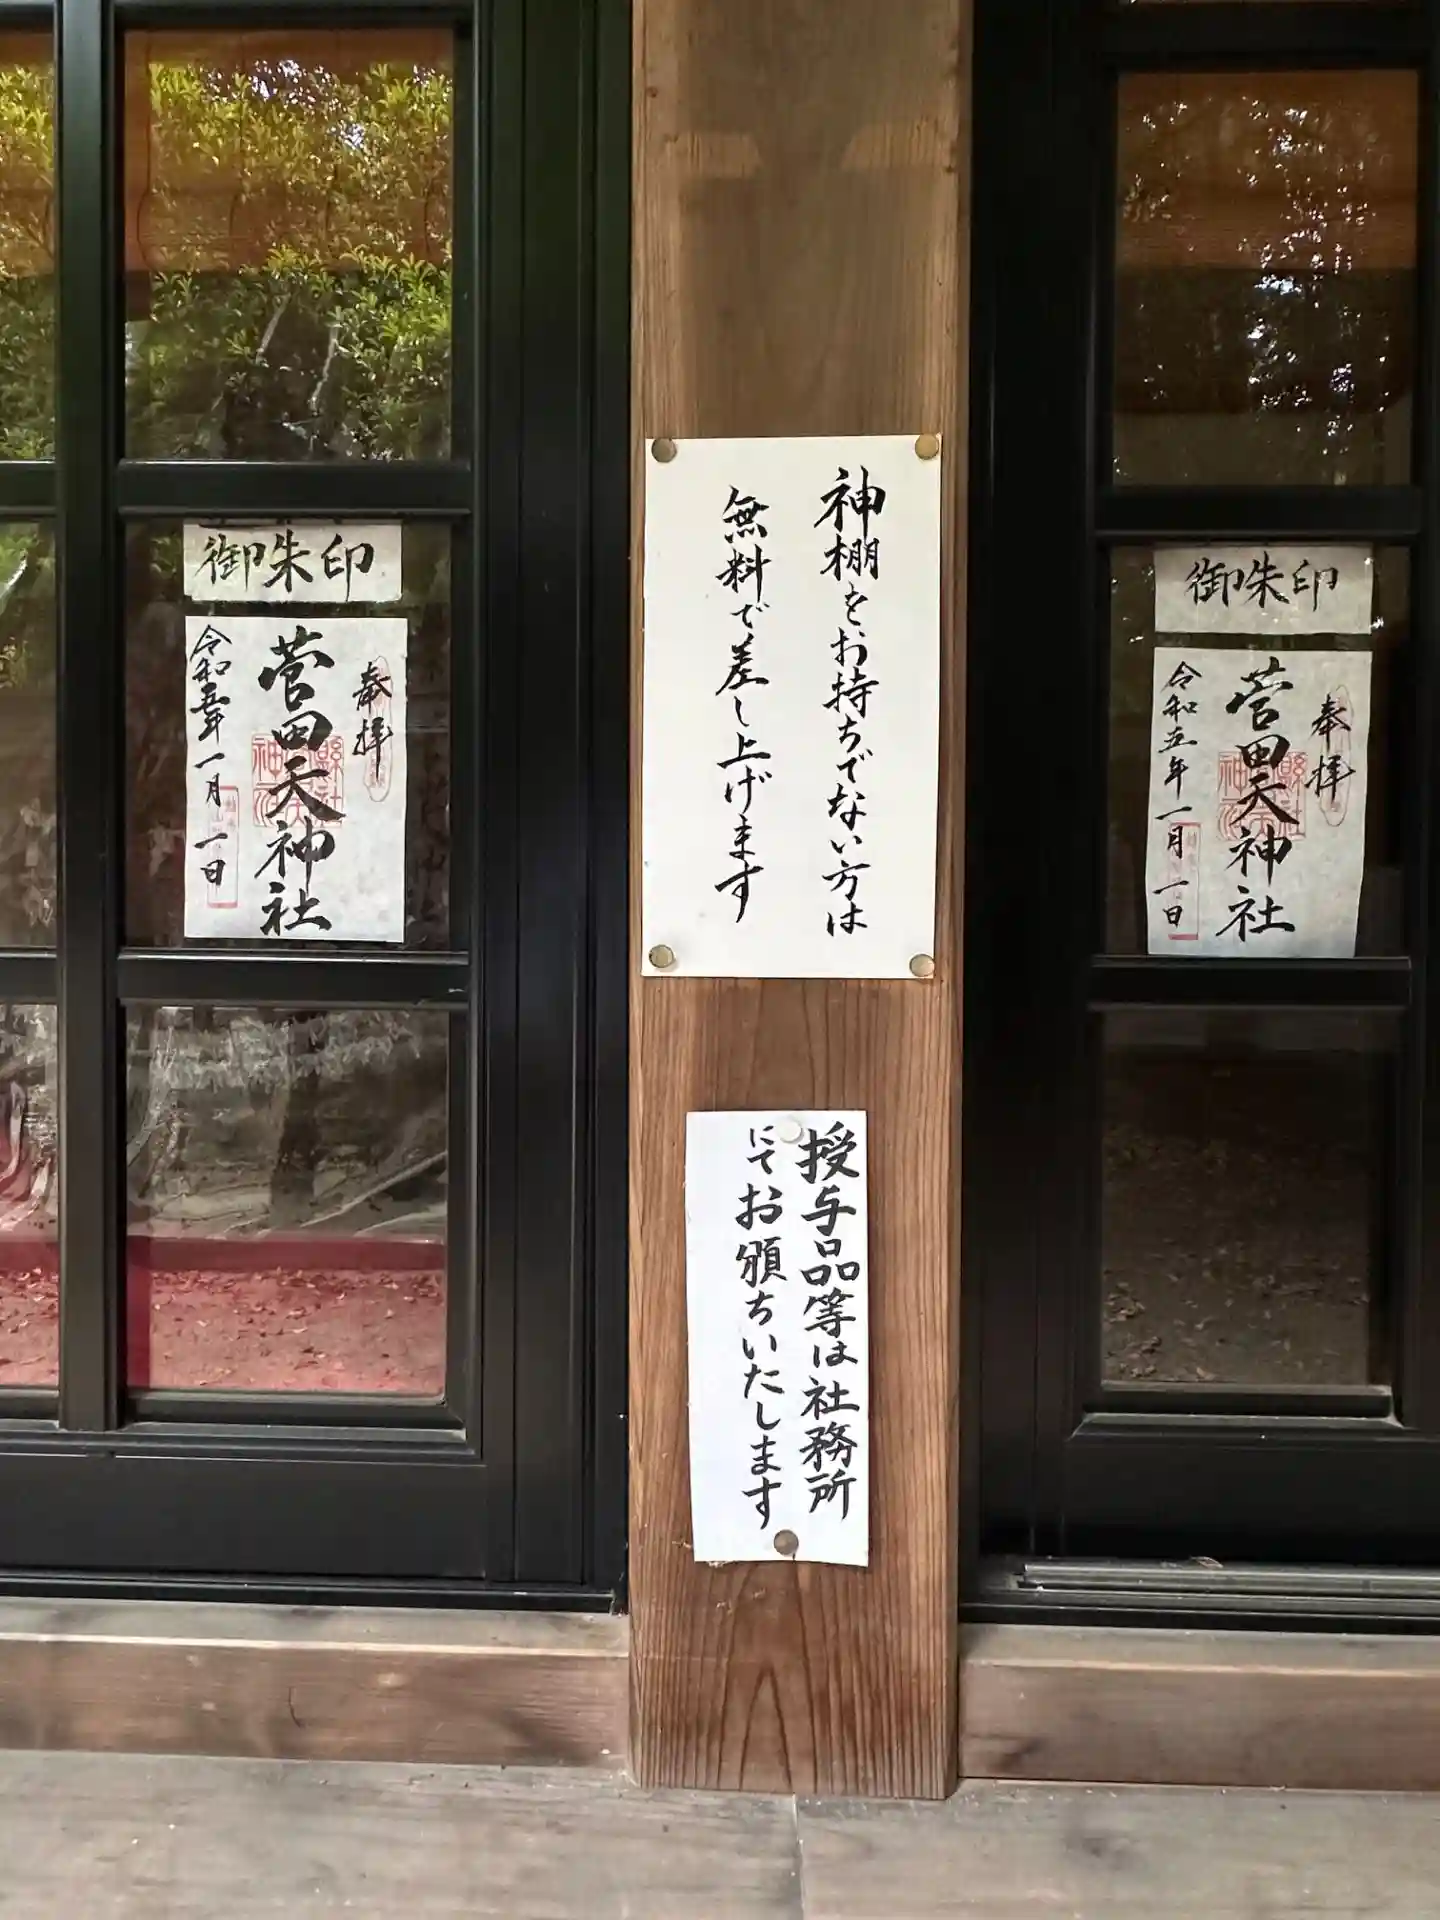 御朱印
奉拝
菅田天神社
令和五年一月一日
神棚をお持ちでない方は
無料で差し上げます
授与品等は社務所
にてお頒ちいたします
御朱印
奉拝
菅田天神社
令和五年一月一日